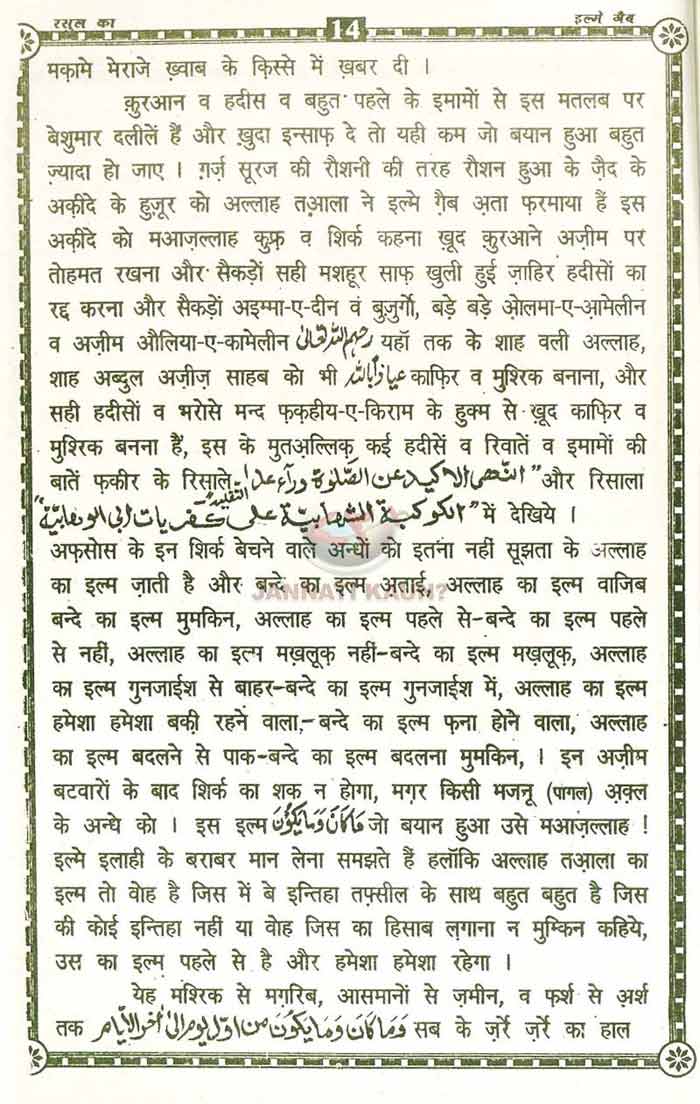 रसूल का 14 इल्मे ग़ैब
मक़ामे मेराजे ख़्वाब के क़िस्से में ख़बर दी ।
क़ुरआन व हदीस व बहुत पहले के इमामों से इस मतलब पर
बेशुमार दलीलें हैं और ख़ुदा इन्साफ़ दे तो यही कम जो बयान हुआ बहुत
ज़्यादा हो जाए । ग़र्ज़ सूरज की रौशनी की तरह रौशन हुआ के ज़ैद के
अक़ीदे के हुज़ूर को अल्लाह तआला ने इल्मे ग़ैब अता फ़रमाया हैं इस
अक़ीदे को मआज़ल्लाह कुफ़्र व शिर्क कहना ख़ूद क़ुरआने अज़ीम पर
तोहमत रखना और सैकड़ों सही मशहूर साफ़ खुली हुई ज़ाहिर हदीसों का
रद्द करना और सैकड़ों अइम्मा-ए-दीन व बुज़ुर्गों, बड़े बड़े ओलमा-ए-आमेलीन
व अज़ीम औलिया-ए-कामेलीन رحمهم الله تعالىٰ यहाँ तक के शाह वली अल्लाह,
शाह अब्दुल अज़ीज़ साहब को भी عياذ بالله काफ़िर व मुश्रिक बनाना, और
सही हदीसों व भरोसे मन्द फ़क़्हीय-ए-किराम के हुक्म से ख़ूद काफ़िर व
मुश्रिक बनना हैं, इस के मुतअल्लिक़ कई हदीसें व रिवातें व इमामों की
बातें फ़कीर के रिसाले "النهى الاكيد عن الصلوة وراء عدا التقليد" और रिसाला
"الكوكبة الشهابية على كفريات ابى الوهابية" में देखिये ।
अफ़सोस के इन शिर्क बेचने वाले अन्धों को इतना नहीं सूझता के अल्लाह
का इल्म ज़ाती है और बन्दे का इल्म अताई, अल्लाह का इल्म वाजिब
JANNATI KAUN?
बन्दे का इल्म मुमकिन, अल्लाह का इल्म पहले से-बन्दे का इल्म पहले
से नहीं, अल्लाह का इल्म मख़लूक़ नहीं-बन्दे का इल्म मख़लूक़, अल्लाह
का इल्म गुनजाईश से बाहर-बन्दे का इल्म गुनजाईश में, अल्लाह का इल्म
हमेशा हमेशा बक़ी रहने वाला,-बन्दे का इल्म फ़ना होने वाला, अल्लाह
का इल्म बदलने से पाक-बन्दे का इल्म बदलना मुमकिन, । इन अज़ीम
बटवारों के बाद शिर्क का शक़ न होगा, मगर किसी मजनू (पागल) अक़्ल
के अन्धे को । इस इल्म مَاكَانَ وَمَايَكُوْنُ जो बयान हुआ उसे मआज़ल्लाह !
इल्मे इलाही के बराबर मान लेना समझते हैं हलाँकि अल्लाह तआला का
इल्म तो वोह है जिस में बे इन्तिहा तफ़्सील के साथ बहुत बहुत है जिस
की कोई इन्तिहा नहीं या वोह जिस का हिसाब लगाना न मुम्किन कहिये,
उस का इल्म पहले से है और हमेशा हमेशा रहेगा ।
येह मश्रिक से मग़रिब, आसमानों से ज़मीन, व फ़र्श से अर्श
तक وَمَا كَانَ وَمَا يَكُوْنُ مِنْ اَوَّلِ يَوْمٍ اِلىٰ اٰخِرِ الْاَيَّامِ सब के ज़र्रे ज़र्रे का हाल